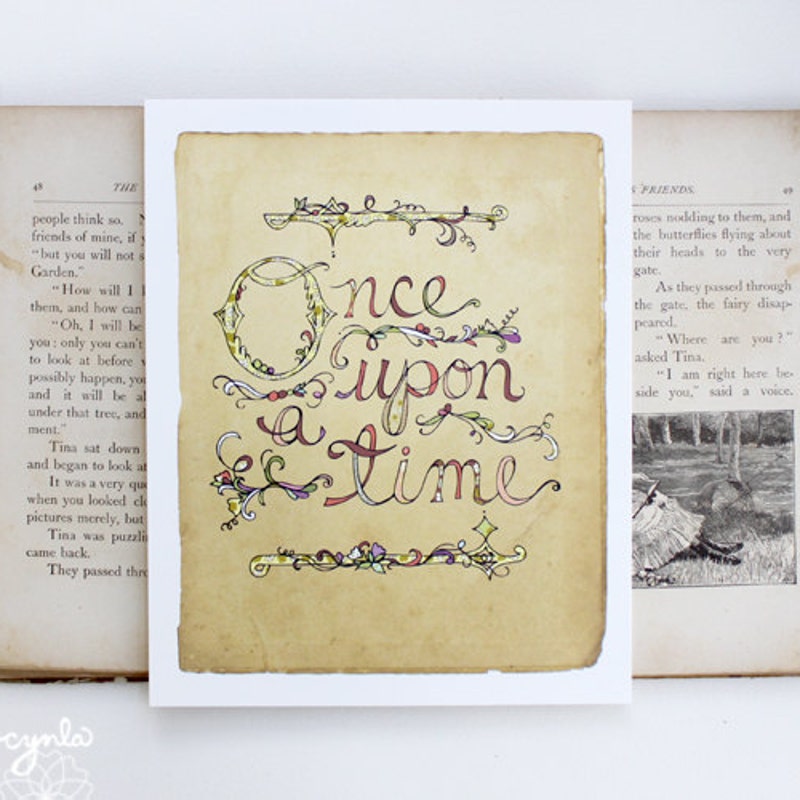 48
THE
people think so.
friends of mine, if
"but you will not s
Garden."
"How will I
them, and how can
"Oh, I will be
you: only you can't
to look at before
possibly happen, you
and it will be al
under that tree, and
ment."
Tina sat down
and began to look at
It was a very que
when you looked clo
pictures merely, but
Tina was puzzlin
came back.
They passed thro
Once
upon
a
time
FRIENDS.
49
roses nodding to them, and
the butterflies flying about
their heads to the very
gate.
As they passed through
the gate, the fairy disap-
peared.
"Where are you?"
asked Tina.
"I am right here be-
side you," said a voice.
cynla